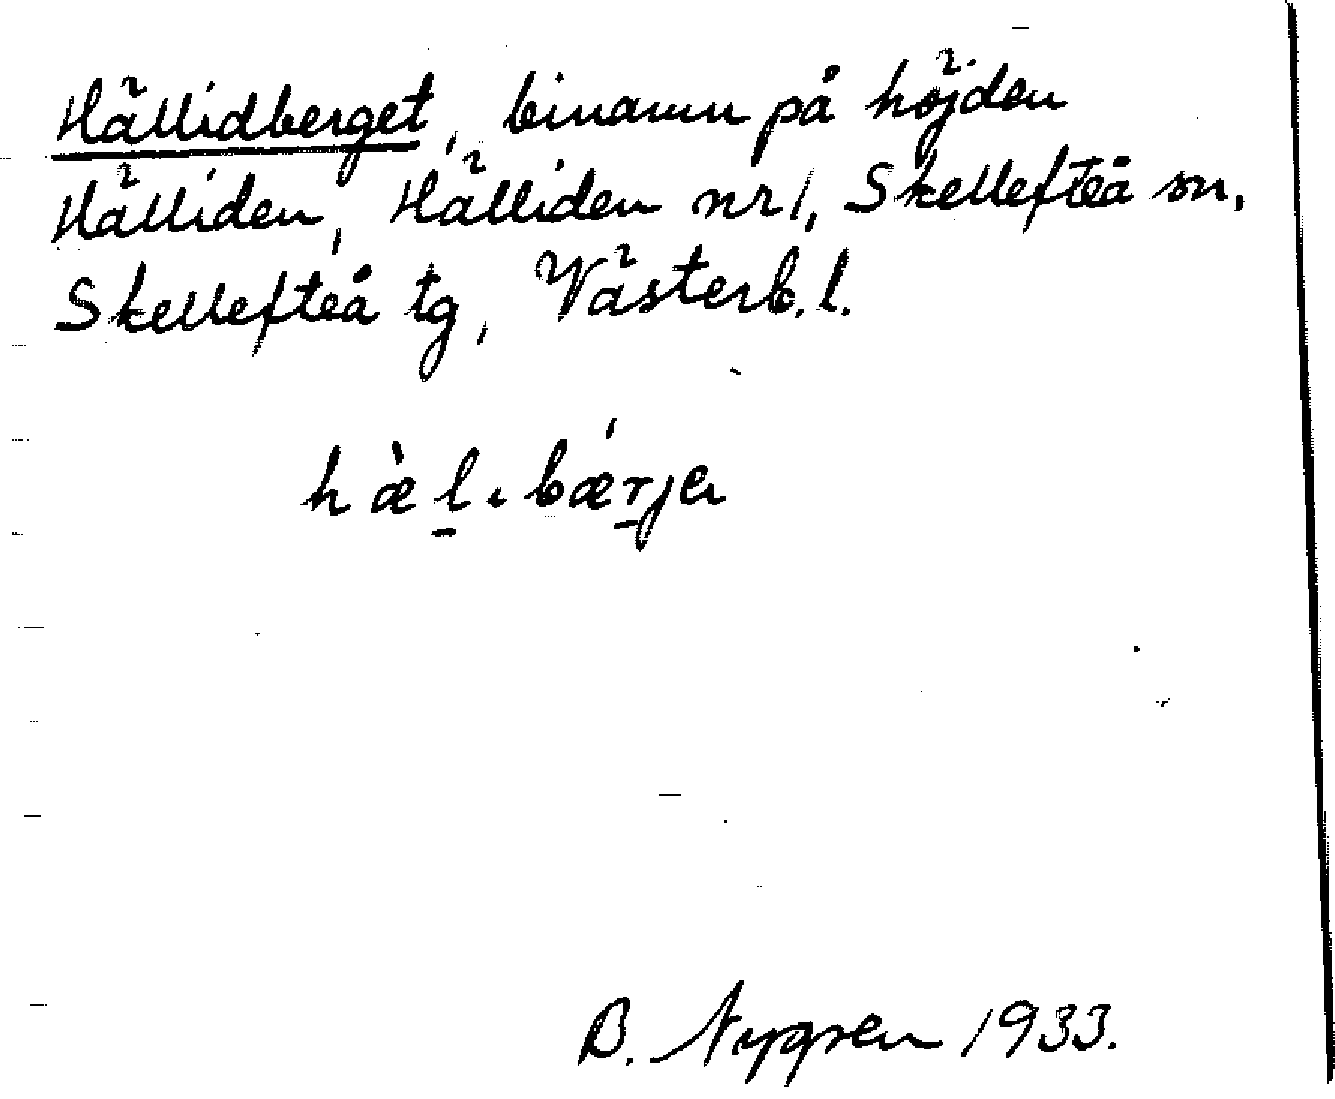 Hällidberget, binamn på höjden
Hälliden, Hälliden nr 1, Skellefteå sn,
Skellefteå tg, Västerb. l.
hæ̀l̠ıbǽr̠ja
B. Nygren 1933.